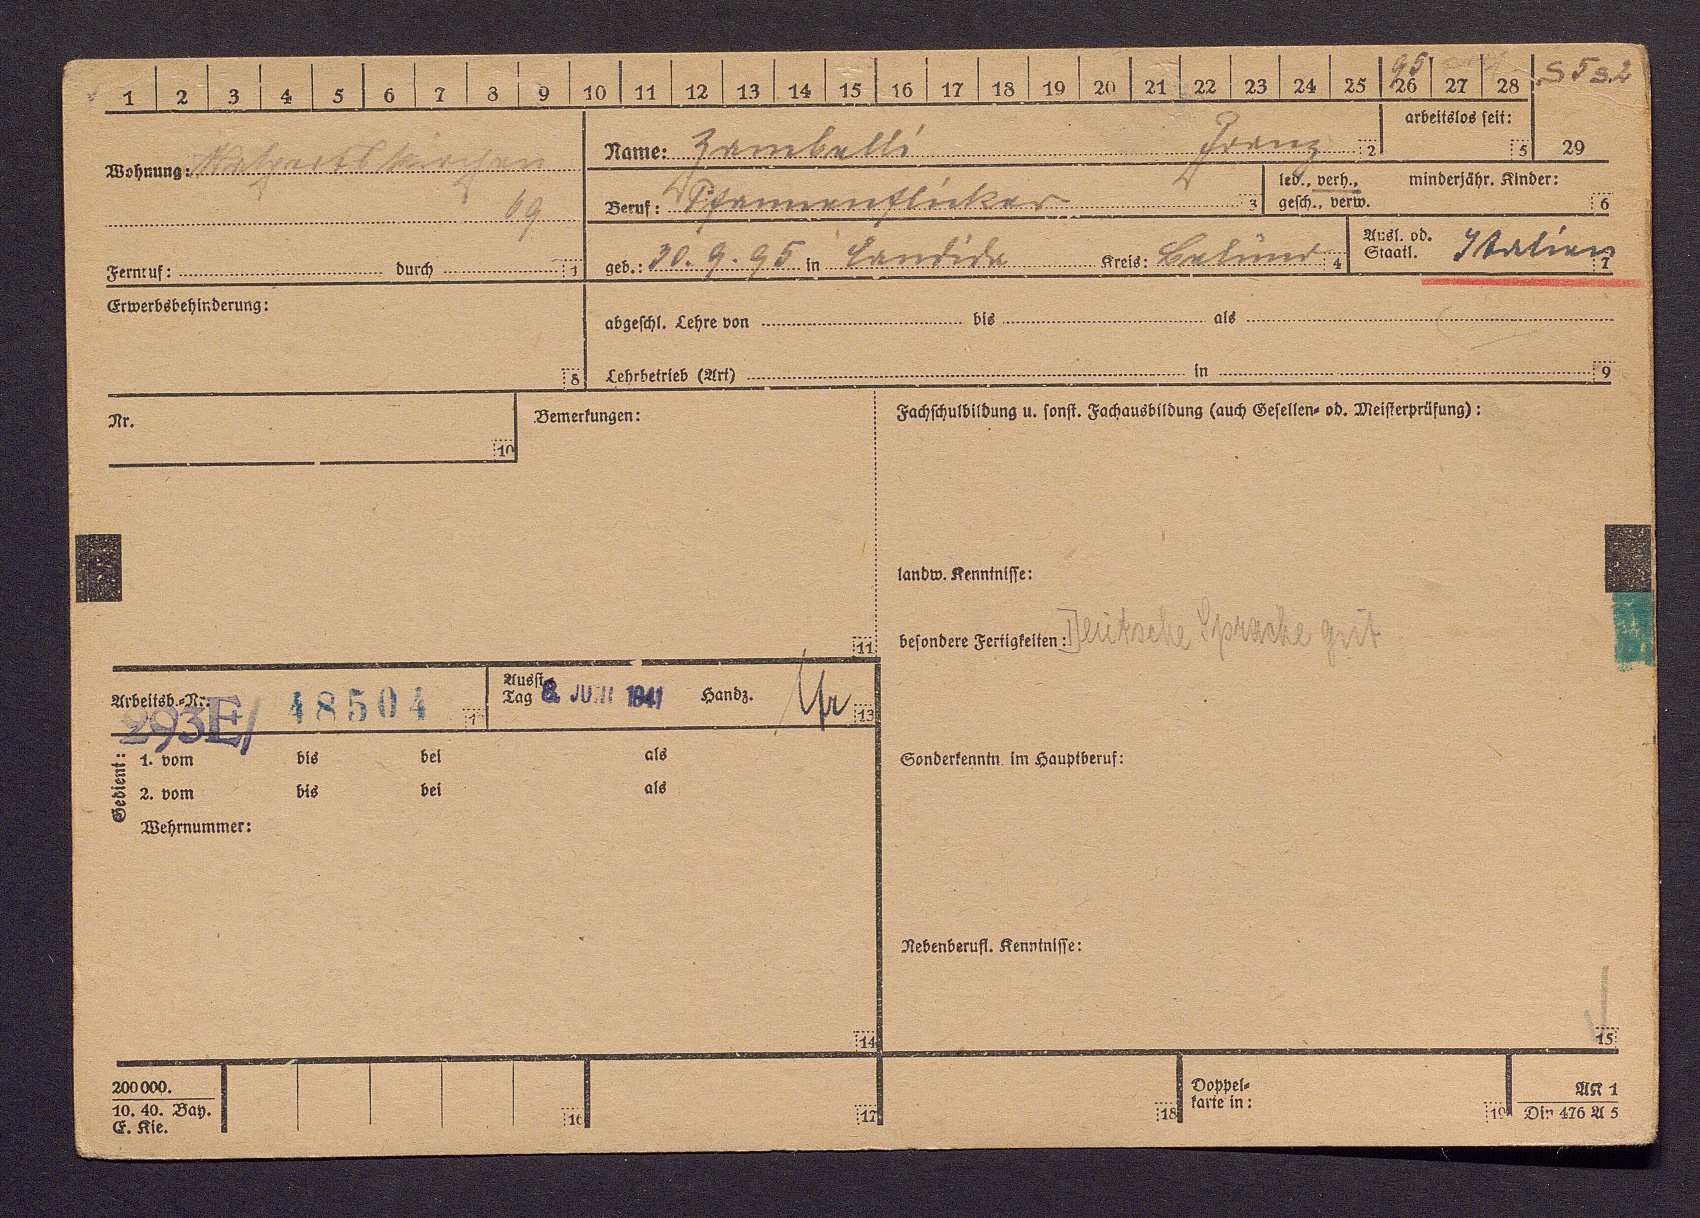 1 2 3 4 5 6 7 8 9 10 11 12 13 14 15 16 17 18 19 20 21 22 23 24 25 26 27 28
95
S 5 s 2
arbeitslos seit:
5 29
Wohnung:
69
Fernruf: durch 1
Name: Zambelli Franz 2
Beruf: Pfannenflicker 3
led., verh., gesch., verw.
minderjähr. Kinder: 6
geb.: 30. 9. 95 in Candide Kreis: Belluno 4
Ausl. od. Staatl. Italien 7
Erwerbsbehinderung: 8
abgeschl. Lehre von bis als
Lehrbetrieb (Art) in 9
Nr. 10
Bemerkungen: 11
Fachschulbildung u. sonst. Fachausbildung (auch Gesellen- od. Meisterprüfung):
landw. Kenntnisse:
besondere Fertigkeiten: Deutsche Sprache gut
Arbeitsb.-Nr. 293E/ 48504
Ausst. Tag 8. JUNI 1941 Handz. 13
Gedient:
1. vom bis bei als
2. vom bis bei als
Wehrnummer:
14
Sonderkenntn. im Hauptberuf:
Nebenberufl. Kenntnisse:
15
200 000.
10. 40. Bay.
E. Kie.
16 17 18
Doppel-
karte in: 19
AN 1
Din 476 A 5